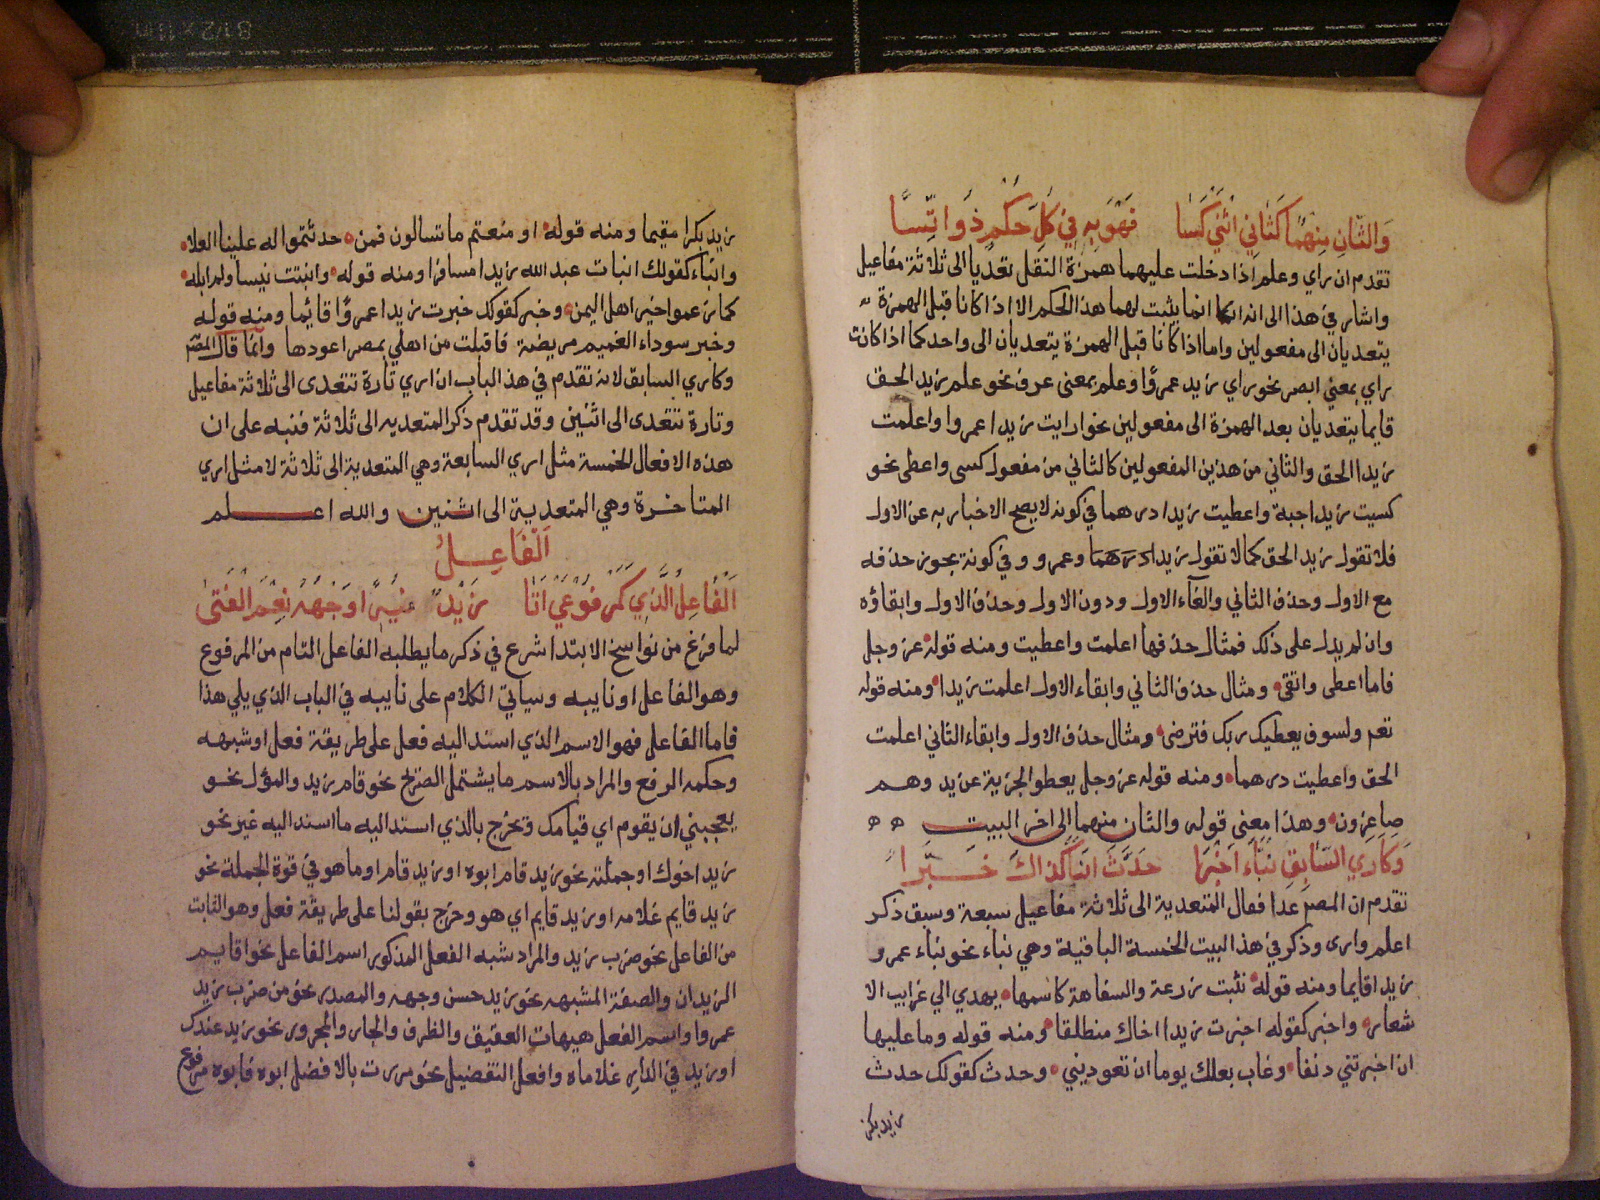 والثان منهما كثاني اثني كسا فهو به في كل حكم ذو اتسا
تقدم ان راي وعلم اذا دخلت عليهما همزة النقل تعديا الى ثلاثة مفاعيل
واشار في هذا الى انه انما يثبت لهما هذا الحكم الا اذا كانا قبل الهمزة
يتعديان الى مفعولين واما اذا كانا قبل الهمزة يتعديان الى واحد كما اذا كانت
راي بمعنى ابصر نحو راي زيد عمروا وعلم بمعنى عرف نحو علم زيد الحق
فانما يتعديان بعد الهمزة الى مفعولين نحو ارايت زيدا عمروا واعلمت
زيدا الحق والثاني من هذين المفعولين كالثاني من مفعول كسى واعطى نحو
كسيت زيدا جبة واعطيت زيدا درهما في كونه لا يصح الاخبار به عن الاول
فلا تقول زيد الحق كما لا تقول زيد درهما وعمرو وفي كونه يجوز حذفه
مع الاول وحذف الثاني والقاء الاول ودون الاول وحذف الاول وابقاؤه
وان لم يدل على ذلك فمثال حذفها اعلمت واعطيت ومنه قوله عز وجل
فاما اعطى واتقى ومثال حذف الثاني وابقاء الاول اعلمت زيدا ومنه قوله
تعم ولسوف يعطيك ربك فترضى ومثال حذف الاول وابقاء الثاني اعلمت
الحق واعطيت درهما ومنه قوله عز وجل يعطوا الجزية عن يد وهم
صاغرون وهذا معنى قوله والثان منهما الى اخر البيت
وكاري السابق نباء اخبرا حدث انبا كذاك خبرا
تقدم ان المص عد افعال المتعدية الى ثلاثة مفاعيل سبعة وسبق ذكر
اعلم وارى وذكر في هذا البيت الخمسة الباقية وهي نباء نحو نباء عمرو
زيدا قايما ومنه قوله نبئت زرعة والسفاهة كاسمها يهدي الي غرايب الا
شعار واخبر كقوله اخبرت زيدا اخاك منطلقا ومنه قوله وما عليها
ان اخبرتني دنفا وغاب بعلك يوما ان تعوديني وحدث كقولك حدث
زيد بكر
زيد بكرا مقيما ومنه قوله او منعتم ما تسالون فمن حدثتموا له علينا العلا
وانباء كقولك انبات عبد الله زيدا مسافرا ومنه قوله وانبئت نيسا ولم ابله
كما زعموا خير اهل اليمن وخبر كقولك خبرت زيدا عمروا قايما ومنه قوله
وخبر سوداء الغميم مريضة فاقبلت من اهلي بمصر اعودها وانما قال المص
وكاري السابق لانه تقدم في هذ الباب ان اري تارة تتعدى الى ثلاثة مفاعيل
وتارة تتعدى الى اثنين وقد تقدم ذكر المتعديه الى ثلاثة فنبه على ان
هذه الافعال الخمسة مثل اري السابعة وهي المتعدية الى ثلاثة لا مثل اري
المتاخرة وهي المتعدية الى اثنين والله اعلم
الفاعل
الفاعل الذي كمرفوعي اتا زيد منيرا وجهه نعم الفتى
لما فرغ من نواسخ الابتدا شرع في ذكر ما يطلبه الفاعل التام من المرفوع
وهو الفاعل او نايبه وسياتي الكلام على نايبه في الباب الذي يلي هذا
فاما الفاعل فهو الاسم الذي اسند اليه فعل على طريقة فعل او شبهه
وحكمه الرفع والمراد بالاسم ما يشتمل الصريح نحو قام زيد والمؤل نحو
يعجبني ان يقوم اي قيامك وتخرج بالذي اسند اليه ما اسند اليه غير نحو
زيد اخوك او جملته نحو زيد قام ابوه او زيد قام او ما هو في قوة الجملة نحو
زيد قايم غلامه او زيد قايم اي هو وخرج بقولنا على طريقة فعل وهو الثابت
من الفاعل نحو ضرب زيد والمراد شبه الفعل المذكور اسم الفاعل نحو اقايم
الزيدان والصفة المشبهه نحو زيد حسن وجهه والمصدر نحو من ضرب زيد
عمروا واسم الفعل هيهات العقيق والظرف والجار والمجرور نحو زيد عندك
او زيد في الدار غلاماه وافعل التفضيل نحو مررت بالافضل ابوه فابوه مرفوع